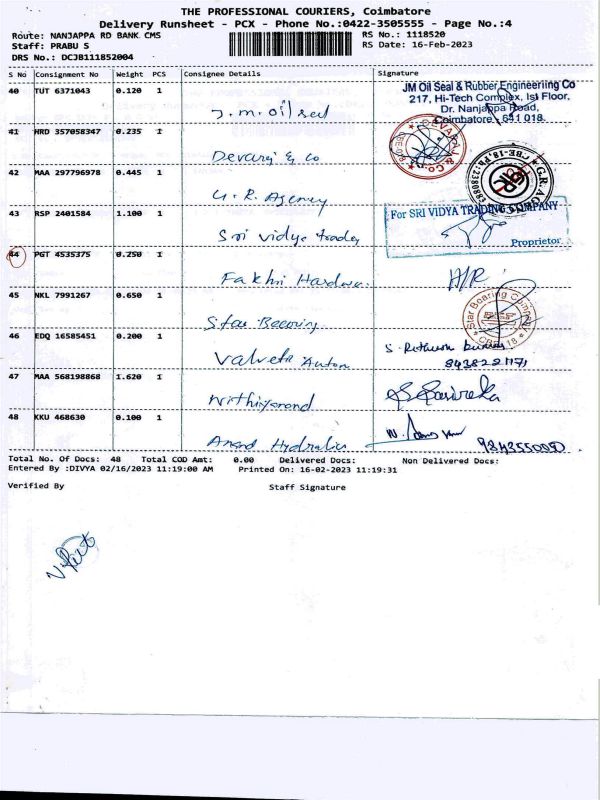 THE PROFESSIONAL COURIERS, Coimbatore
Delivery Runsheet - PCX - Phone No.:0422-3505555 - Page No.:4
Route: NANJAPPA RD BANK CMS RS No.: 1118520
Staff: PRABU S RS Date: 16-Feb-2023
DRS No.: DCJB111852004
S No Consignment No Weight PCS Consignee Details Signature
40 TUT 6371043 0.120 1 J.m.oil seal
JM Oil Seal & Rubber Engineeriing Co
217, Hi-Tech Complex, Ist Floor,
Dr. Nanjappa Road,
Coimbatore - 641 018.
41 HRD 357058347 0.235 1 Devaraj & co
DEVARAJ & Co.
42 MAA 297796978 0.445 1 G.R. Agency
GR
43 RSP 2401584 1.100 1 Sri vidya trades
For SRI VIDYA TRADING COMPANY
Proprietor.
44 PGT 4535375 0.250 1 Fakhri
45 NKL 7991267 0.650 1 Star Bearing
Star Bearing Company
46 EDQ 16585451 0.200 1
47 MAA 568198868 1.620 1
48 KKU 468630 0.100 1 Anand Hydralics
Total No. Of Docs: 48 Total COD Amt: 0.00 Delivered Docs: Non Delivered Docs:
Entered By :DIVYA 02/16/2023 11:19:00 AM Printed On: 16-02-2023 11:19:31
Verified By Staff Signature